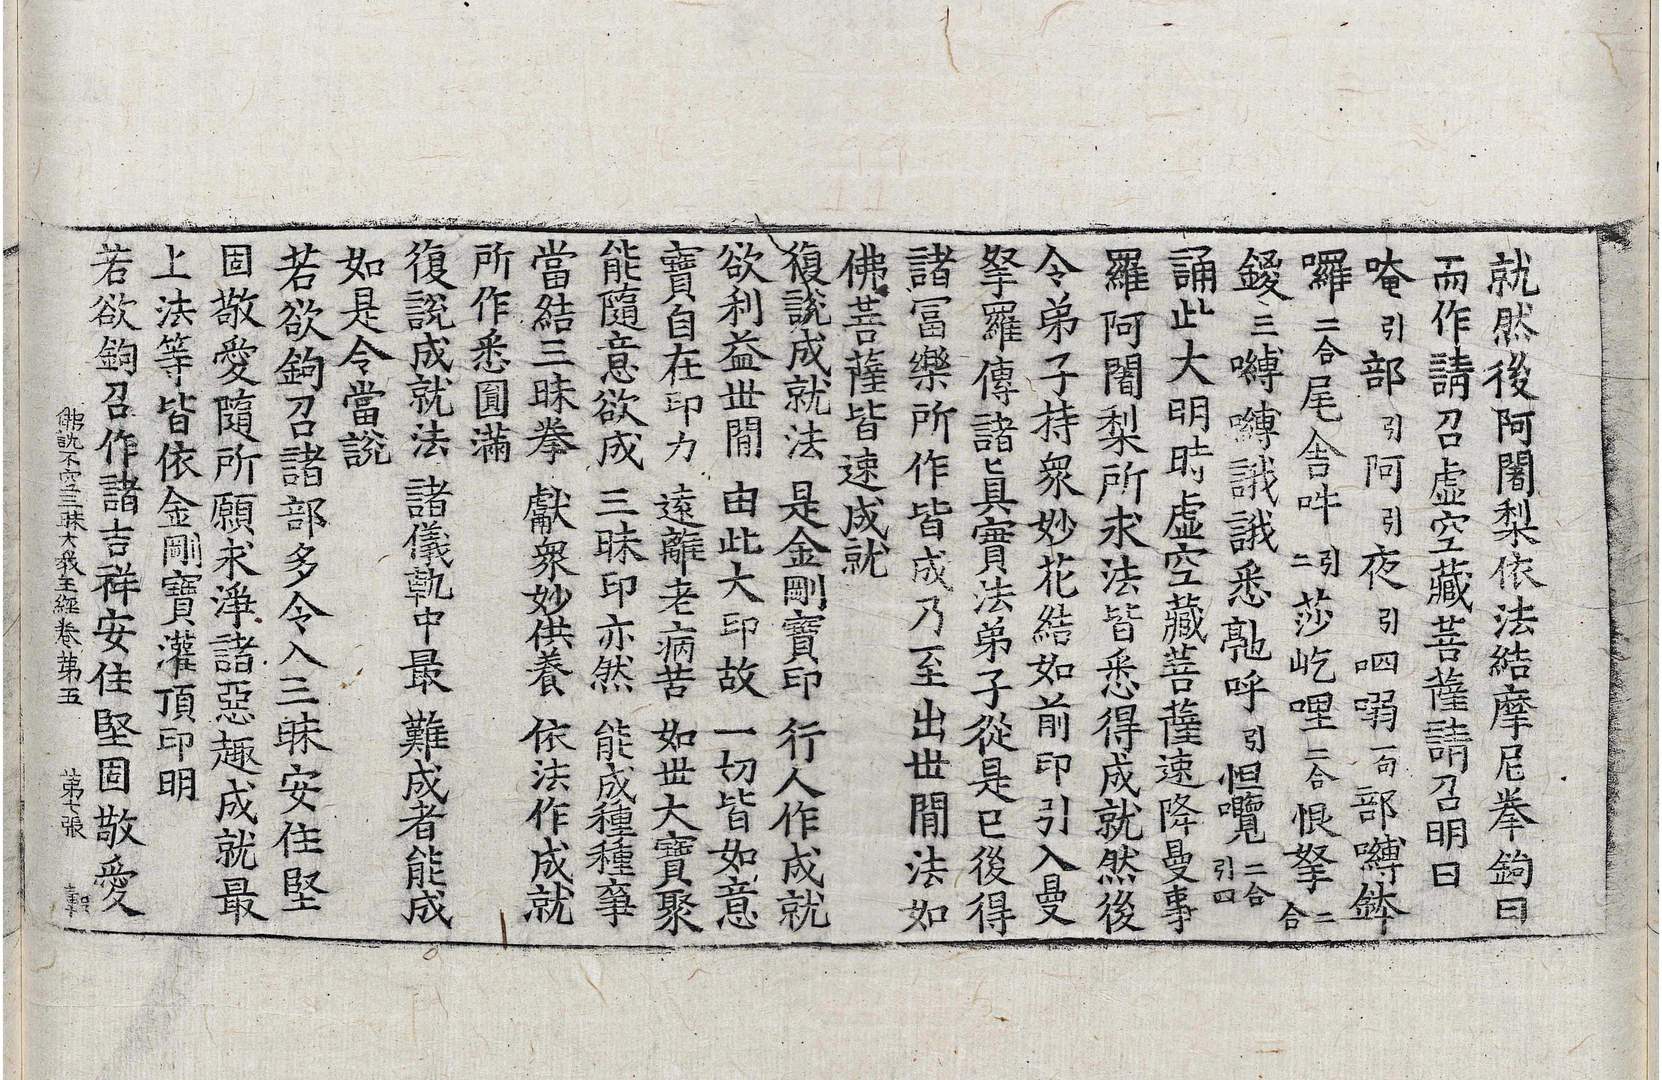 就然後阿闍梨依法結摩尼拳鉤曰
而作請召虛空藏菩薩請召明曰
唵引部引阿引夜引呬弱一句部嚩鉢
囉二合尾舍吽引二莎屹哩二合恨拏二合
鑁三嚩嚩誐誐悉馳呼引怛囕二合引四
誦此大明時虛空藏菩薩速降曼事
羅阿闍梨所求法皆悉得成就然後
令弟子持衆妙花結如前印引入曼
拏羅傳諸眞實法弟子從是已後得
諸冨樂所作皆成乃至出世間法如
佛菩薩皆速成就
復說成就法 是金剛寶印 行人作成就
欲利益世間 由此大印故 一切皆如意
寶自在印力 遠離老病苦 如世大寶聚
能隨意欲成 三昧印亦然 能成種種事
當結三昧拳 獻衆妙供養 依法作成就
所作悉圓滿
復說成就法 諸儀軌中最 難成者能成
如是令當說
若欲鉤召諸部多令入三昧安住堅
固敬愛隨所願求淨諸惡趣成就最
上法等皆依金剛寶灌頂印明
若欲鉤召作諸吉祥安住堅固敬愛
佛說不空三昧大教王經卷第五 第七張